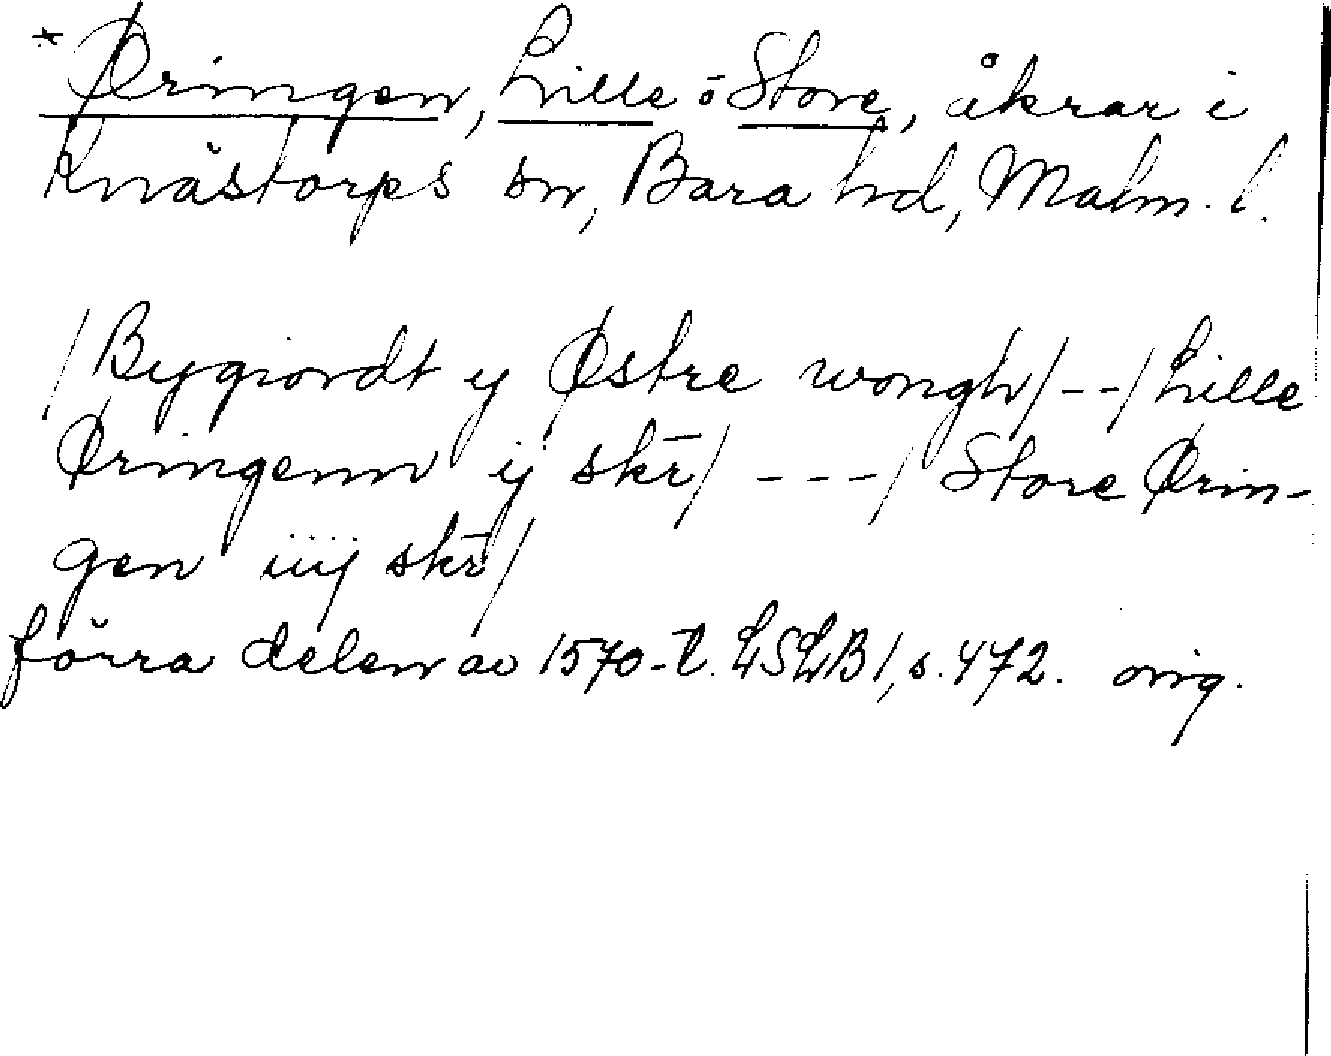 * Øringen, Lille o Store, åkrar i
Knästorps sn, Bara hd, Malm. l.
/Bygiordt y Østre wongh/ - - / Lille
Øringenn ij skr̄/ - - - / Store Ørin-
gen iiij skr̄/
förra delen av 1570-t. LSLB 1, s. 472. orig.